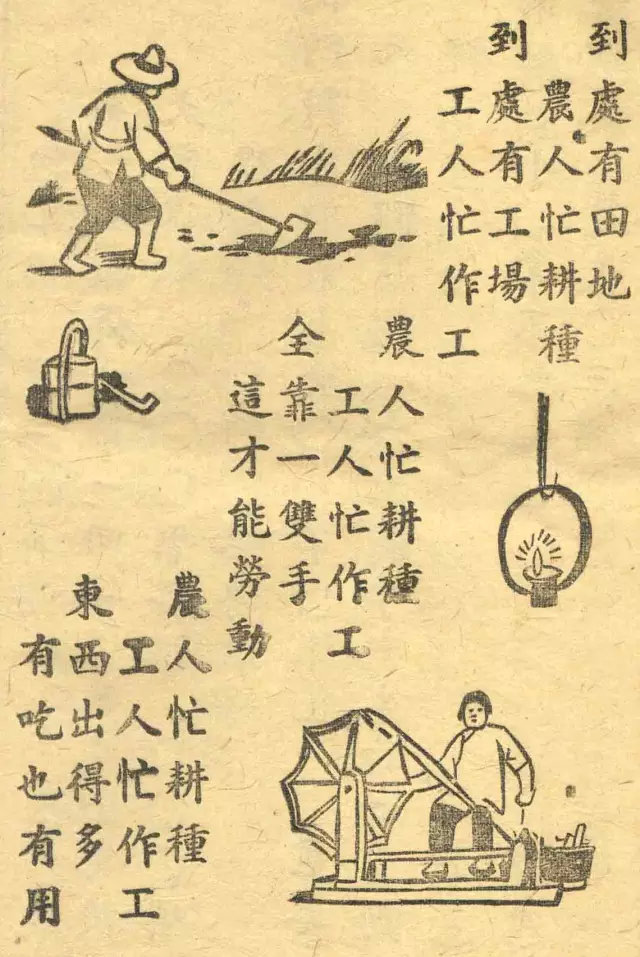 到處有田地
農人忙耕種
到處有工場
工人忙作工
農人忙耕種
工人忙作工
全靠一雙手
這才能勞動
農人忙耕種
工人忙作工
東西出得多
有吃也有用